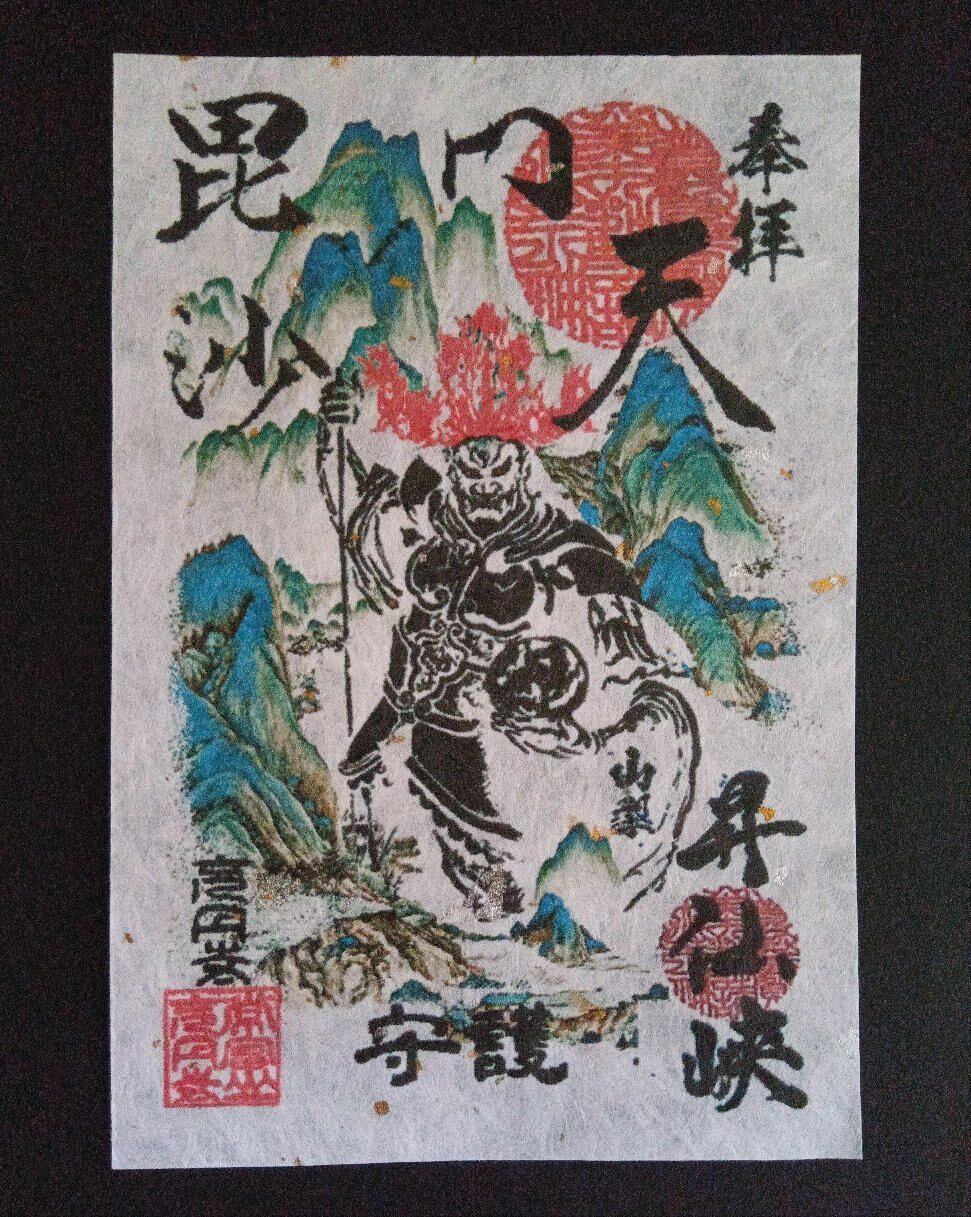 奉拝
毘沙門天
山梨
昇仙峡
守護